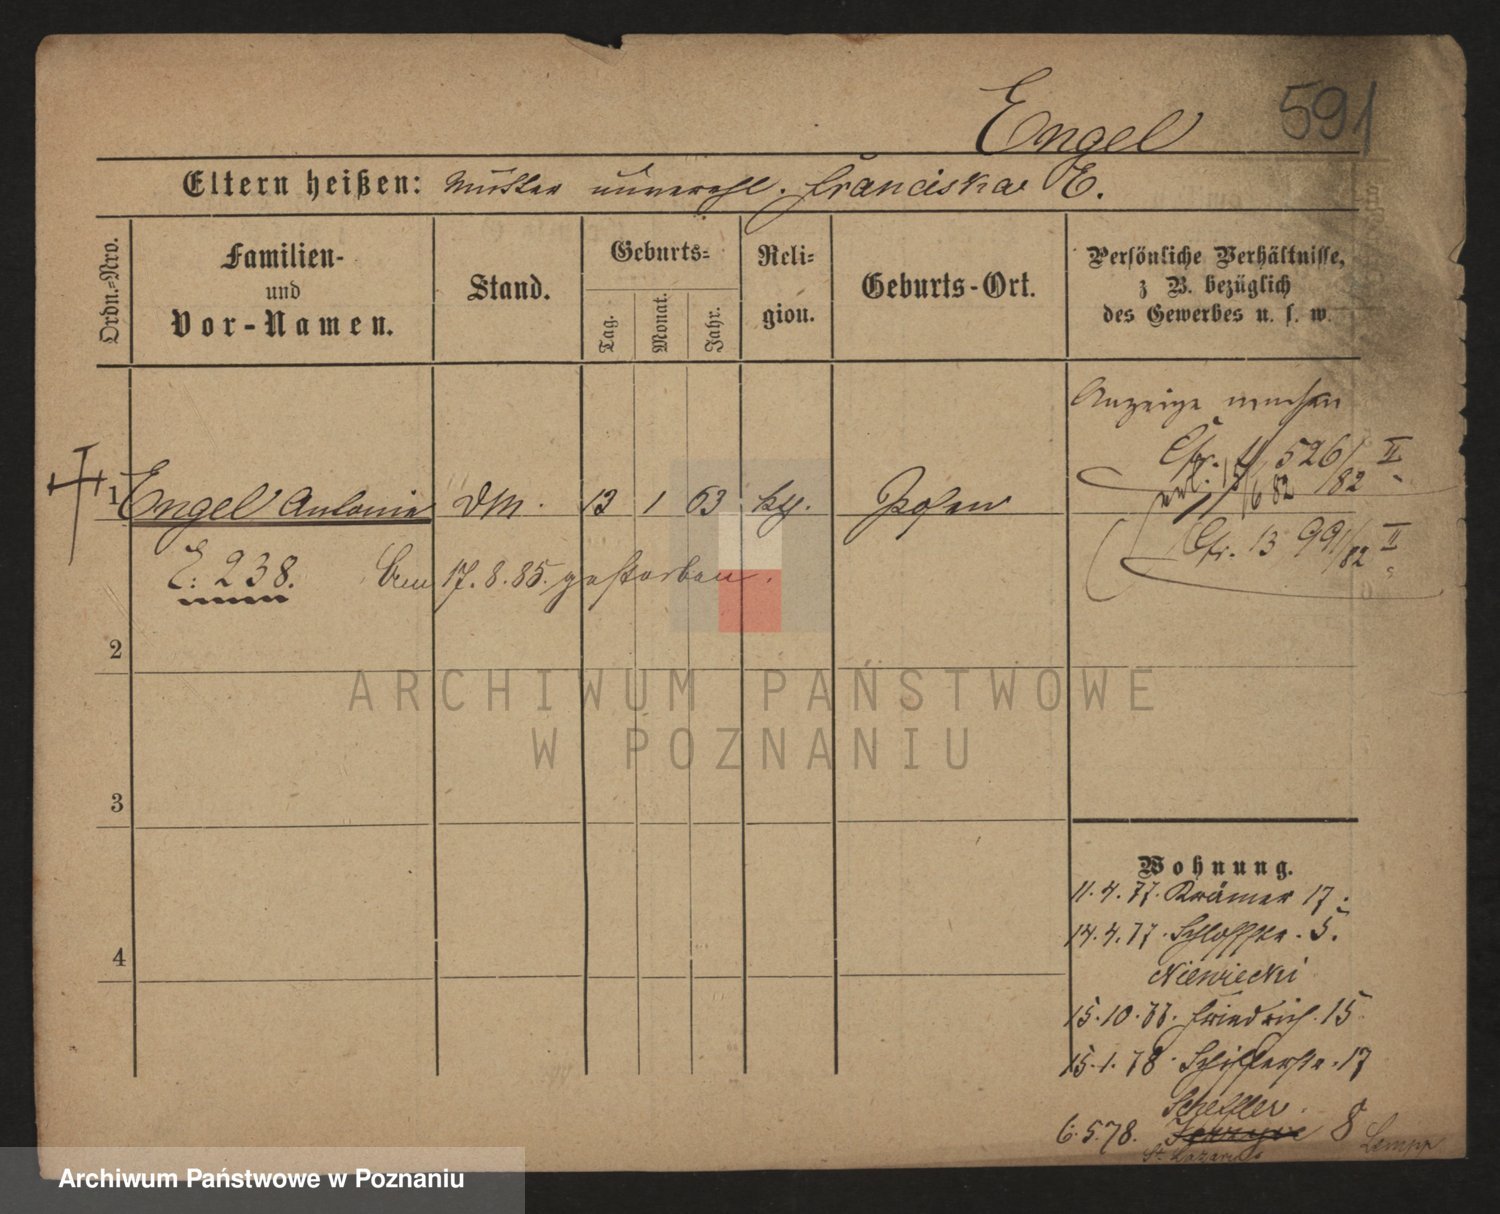 Engel 591
Eltern heißen: Mutter unverehl. Franciska E.
Ordn.=Nro.
Familien-
und
Vor-Namen.
Stand.
Geburts=
Tag.
Monat.
Jahr.
Reli=
gion.
Geburts-Ort.
Persönliche Verhältnisse,
z B. bezüglich
des Gewerbes u. s. w.
Anzeige machen
Cfr. 11 526/82 II
1 Engel Antonie DM. 13 1 63 kth. Posen
Cfr. 13 991/82 II
E. 238. Am 17.8.85. gestorben.
2
3
4
Wohnung.
11.4.77. Krämer 17.
14.4.77. Schlossstr. 5.
Niewiecki
15.10.77. Friedrich. 15
15.1.78. Schifferstr. 17
Scheller.
6.5.78. 8
St. Lazarus
ARCHIWUM PAŃSTWOWE
W POZNANIU
Archiwum Państwowe w Poznaniu